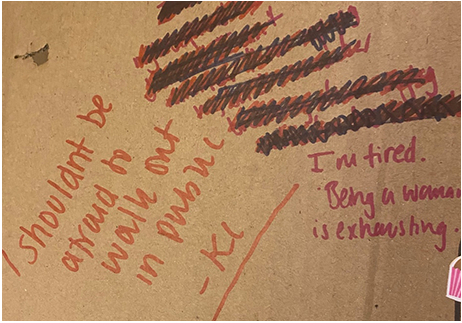 I shouldnt be
afraid to
walk out
in public
- KC
I'm tired.
Being a woman
is exhausting.